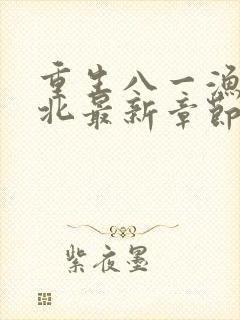 重生八一渔
北最新章节
紫夜墨